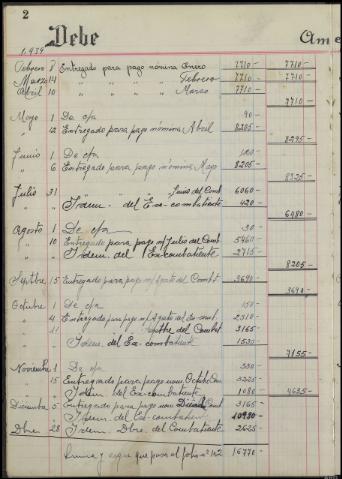 2
1.939 Debe Ame
Febrero 8 Entregado para pago nómina Enero 7710- 7710-
Marzo 14 " " " " Febrero 7710- 7710-
Abril 10 " " " " Marzo 7710-
7710-
Mayo 1 De c/a 90-
" 12 Entregado para pago nómina Abril 8205-
8295-
Junio 1 De c/a
" 6 Entregado para pago nómina Mayo 8205-
Julio 31 " " " " Junio del Comb 6060-
Idem. del Ex-combatiente 420-
6480-
Agosto 1 De c/a
" 10 Entregado para pago m/ Julio del Comb 5460-
Idem. del Ex-combatiente 2715-
8205-
Sepbre 15 Entregado para pago m/ Agosto del Combt 3690-
3690-
Octubre 1 De c/a 150-
" 4 Entregado para pago m/ Agosto del Ex-comb 2310-
" 11 Septbre del Combt 3165-
Idem. del Ex-combatiente 1530-
7155-
Noviembre 1 De c/a
" 15 Entregado para pago nom. Octubre Com 3225-
Idem del Ex-combatiente 1080-
4635-
Diciembre 5 Entregado para pago nom. Com 3165-
Idem. del Ex-combatiente 10980-
Dbre 28 Idem. Dbre. del Combatiente 2625-
Suma y sigue que pasa al folio nº 102 16770-